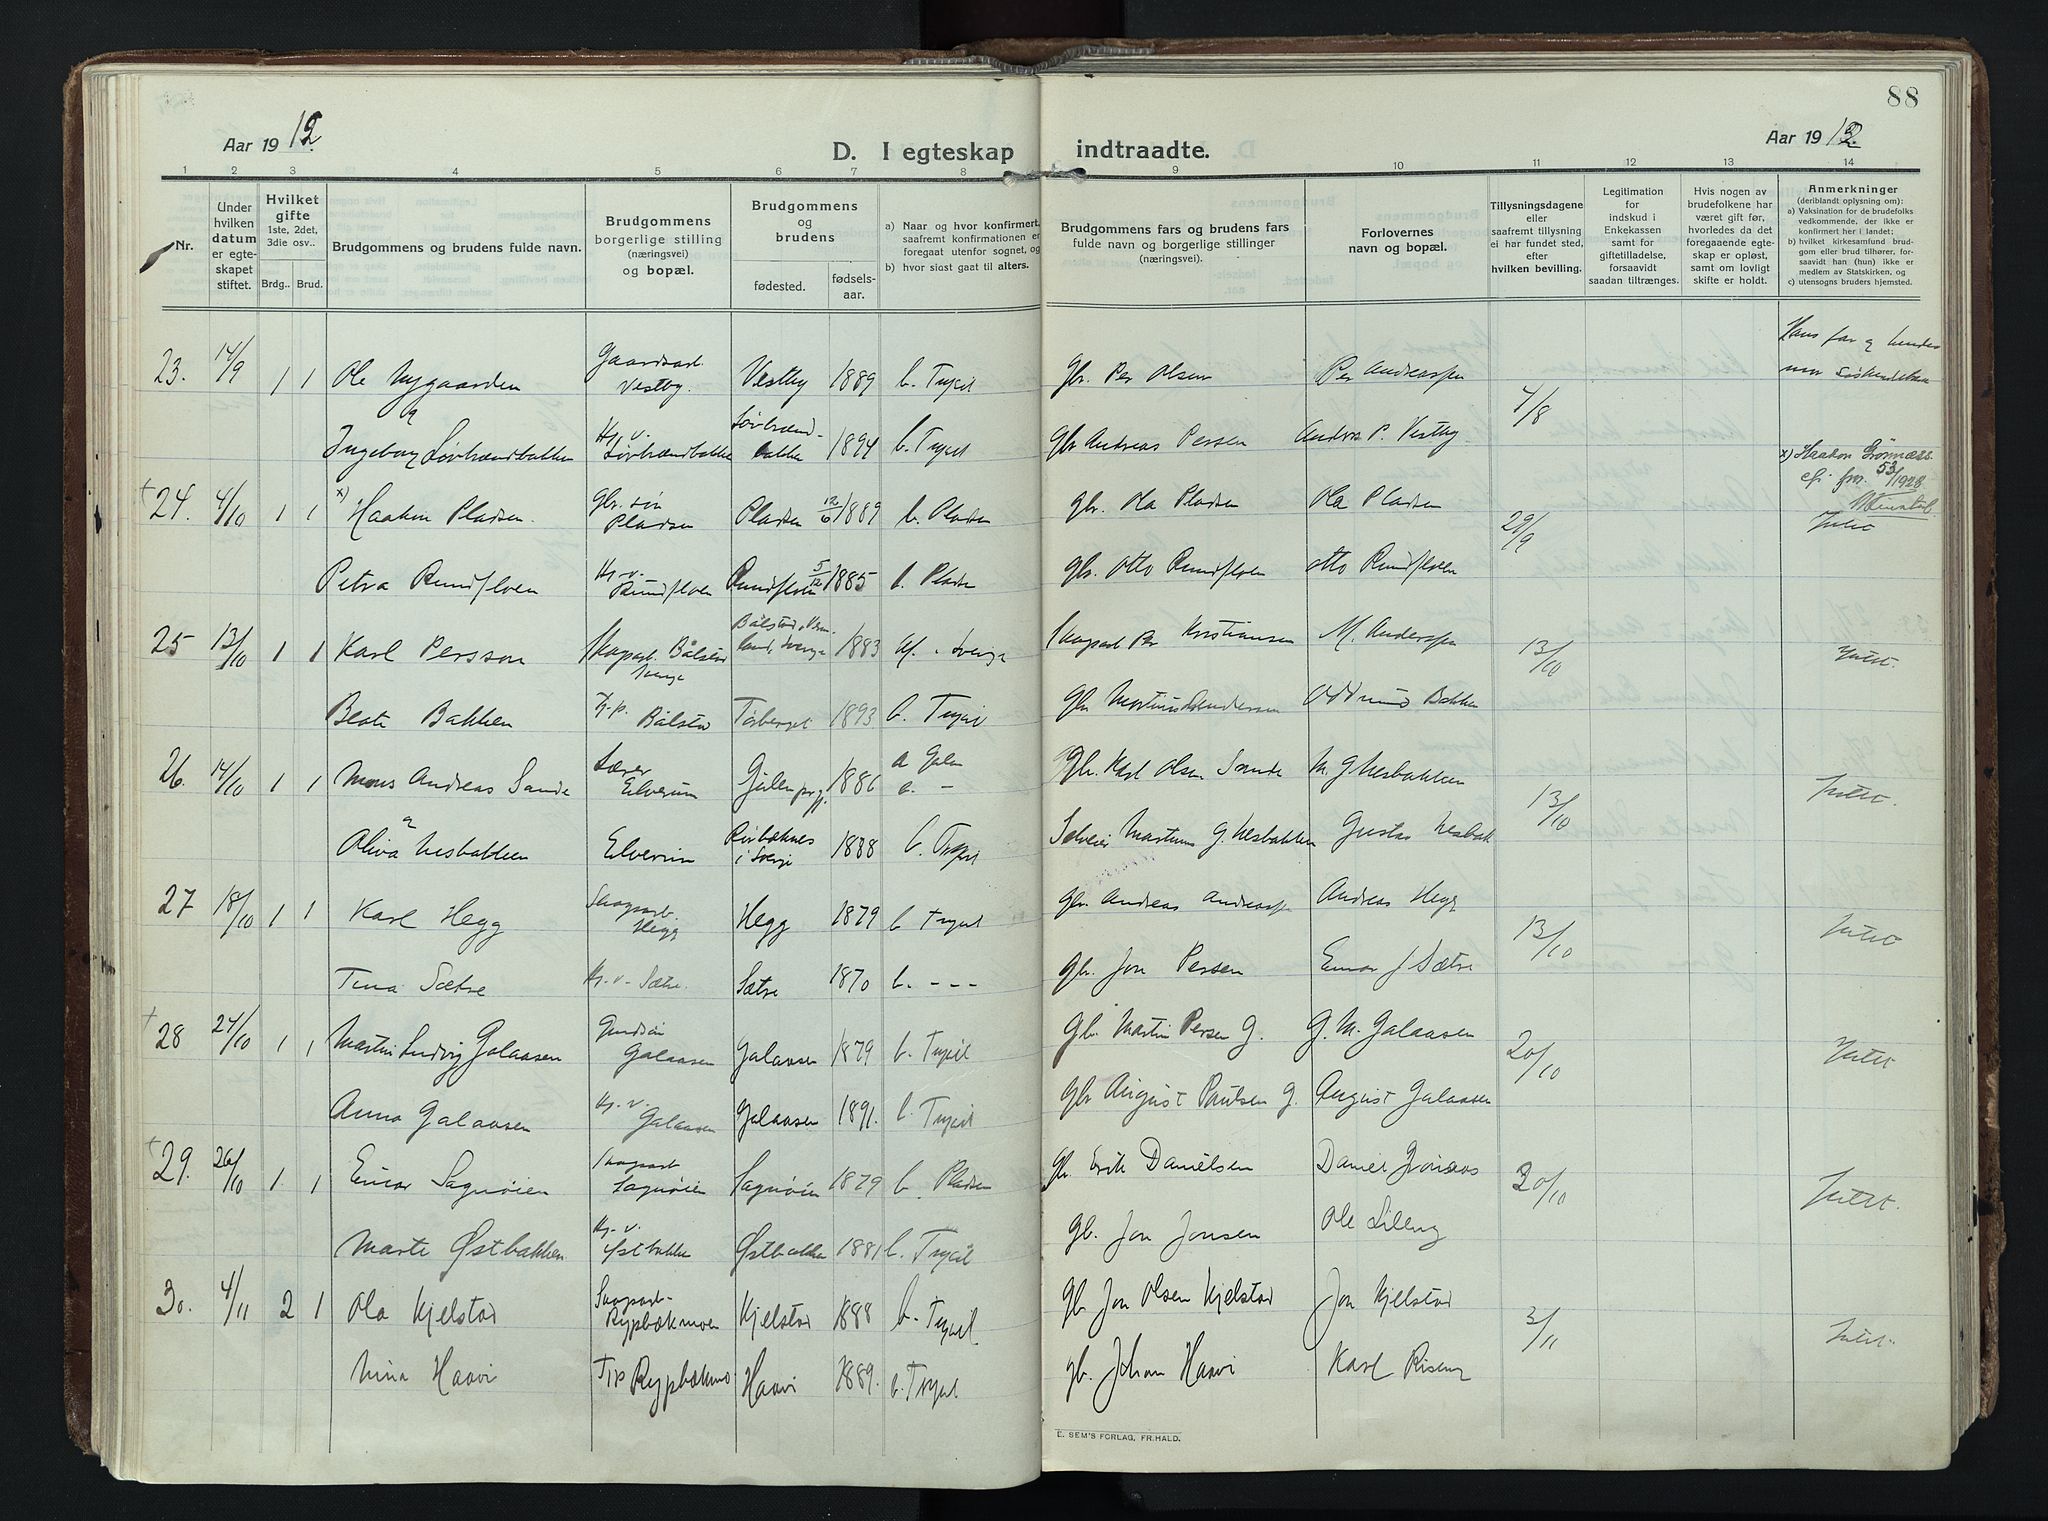 88
Aar 1912.
D. I egteskap indtraadte.
Aar 1912.
1 2 3 4 5 6 7 8 9 10 11 12 13 14
Nr.
Under hvilken datum er egte-skapet stiftet.
Hvilket gifte 1ste, 2det, 3die osv..
Brdg.. Brud.
Brudgommens og brudens fulde navn.
Brudgommens borgerlige stilling (næringsvei) og bopæl.
Brudgommens og brudens
fødested. fødsels-aar.
a) Naar og hvor konfirmert, saafremt konfirmationen er foregaat utenfor sognet, og
b) hvor sidst gaat til alters.
Brudgommens fars og brudens fars fulde navn og borgerlige stillinger (næringsvei).
Forlovernes navn og bopæl.
Tillysningsdagene eller saafremt tillysning ei har fundet sted, efter hvilken bevilling.
Legitimation for indskud i Enkekassen samt for giftetilladelse, forsaavidt saadan tiltrænges.
Hvis nogen av brudefolkene har været gift før, hvorledes da det foregaaende egte-skap er opløst, samt om lovligt skifte er holdt.
Anmerkninger
(deriblandt oplysning om):
a) Vaksination for de brudefolks vedkommende, der ikke er konfirmert her i landet;
b) hvilket kirkesamfund brud-gom eller brud tilhører, for-saavidt han (hun) ikke er medlem av Statskirken, og
c) utensogns bruders hjemsted.
23. 14/9 1 1 Ole Nygaarden Gaardsarb. Vestby. Vestby 1889 b. Trysil Gbr. Per Olsen Per Andreassen 4/8 Hans far og hendes mor søskendebarn
og
Ingeborg Løvbrændbakken Hj. v. Løvbrændbakke Løvbrænd-bakke 1894 b. Trysil Gbr Andreas Persen Anders P. Vestby
x) Haakon Grønnæss cfr. 53/1928
24. 4/10 1 1 x) Haaken Pladsen. Gbr. søn Pladsen Pladsen 12/6 1889 b. Pladsen gbr. Ola Pladsen Ola Pladsen 29/9 Intet
Petra Rundfloen Hj. v. Rundfloen Rundfloen 5/12 1885 b. Pladsen gbr. Otto Rundfloen Otto Rundfloen
25 13/10 1 1 Karl Persson Skogsarb. Bålstad Sverige Bålstad, Verm-land, Sverige 1883 Sverige Skogsarb Per Kristiansen M. Anderssen 13/10 Intet.
Beate Bakken Bålstad Tørberget 1893 b. Trysil Gbr Martinus Andersen Oddmund Bakken
26. 14/10 1 1 Mons Andreas Sande Lærer Elverum Gjulen prgj. 1886 a Gulen b. - Gbr. Karl Olsen Sande M. G Nesbakken 13/10 Intet.
og
Oliva Nesbakken Elverum i Sverige 1888 b. Trysil Martinus G. Nesbakken Gustav Nesbak
27 18/10 1 1 Karl Hegg Skogsarb. Hegg Hegg 1879 b Trysil gbr. Andreas Andreassen Andreas Hegg 13/10 Intet
Tina Sætre Hj. v. Sætre. Sætre 1870 b. - - - gbr. Jon Persen Einar J Sætre
28 24/10 1 1 Martin Ludvig Galaasen Grdsøn Galaasen Galaasen 1879 b. Trysil Gbr. Martin Persen G. G. M. Galaasen 20/10 Intet
Anna Galaasen Hj. v. Galaasen Galaasen 1891. b. Trysil gbr August Paulsen G. August Galaasen
29. 26/10 1. 1 Einar Sagnøien Skogsarb Sagnøien Sagnøien 1879 b. Pladsen gbr Erik Danielsen Daniel 20/10 Intet.
Marte Østbakken Hj. v. Østbakken Østbakken 1881 b. Trysil gbr. Jon Jonsen Ole Lilleng
30. 4/11 2 1 Ola Kjelstad Skogsarb- Rypbækmoen Kjelstad 1888 b. Trysil gbr Jon Olsen Kjelstad Jon Kjelstad 3/11 Intet.
Nina Haavi Rypbækmo Haavi 1889. b. Trysil gbr. Johan Haavi Karl Riseng
E. SEM'S FORLAG, FR.HALD.